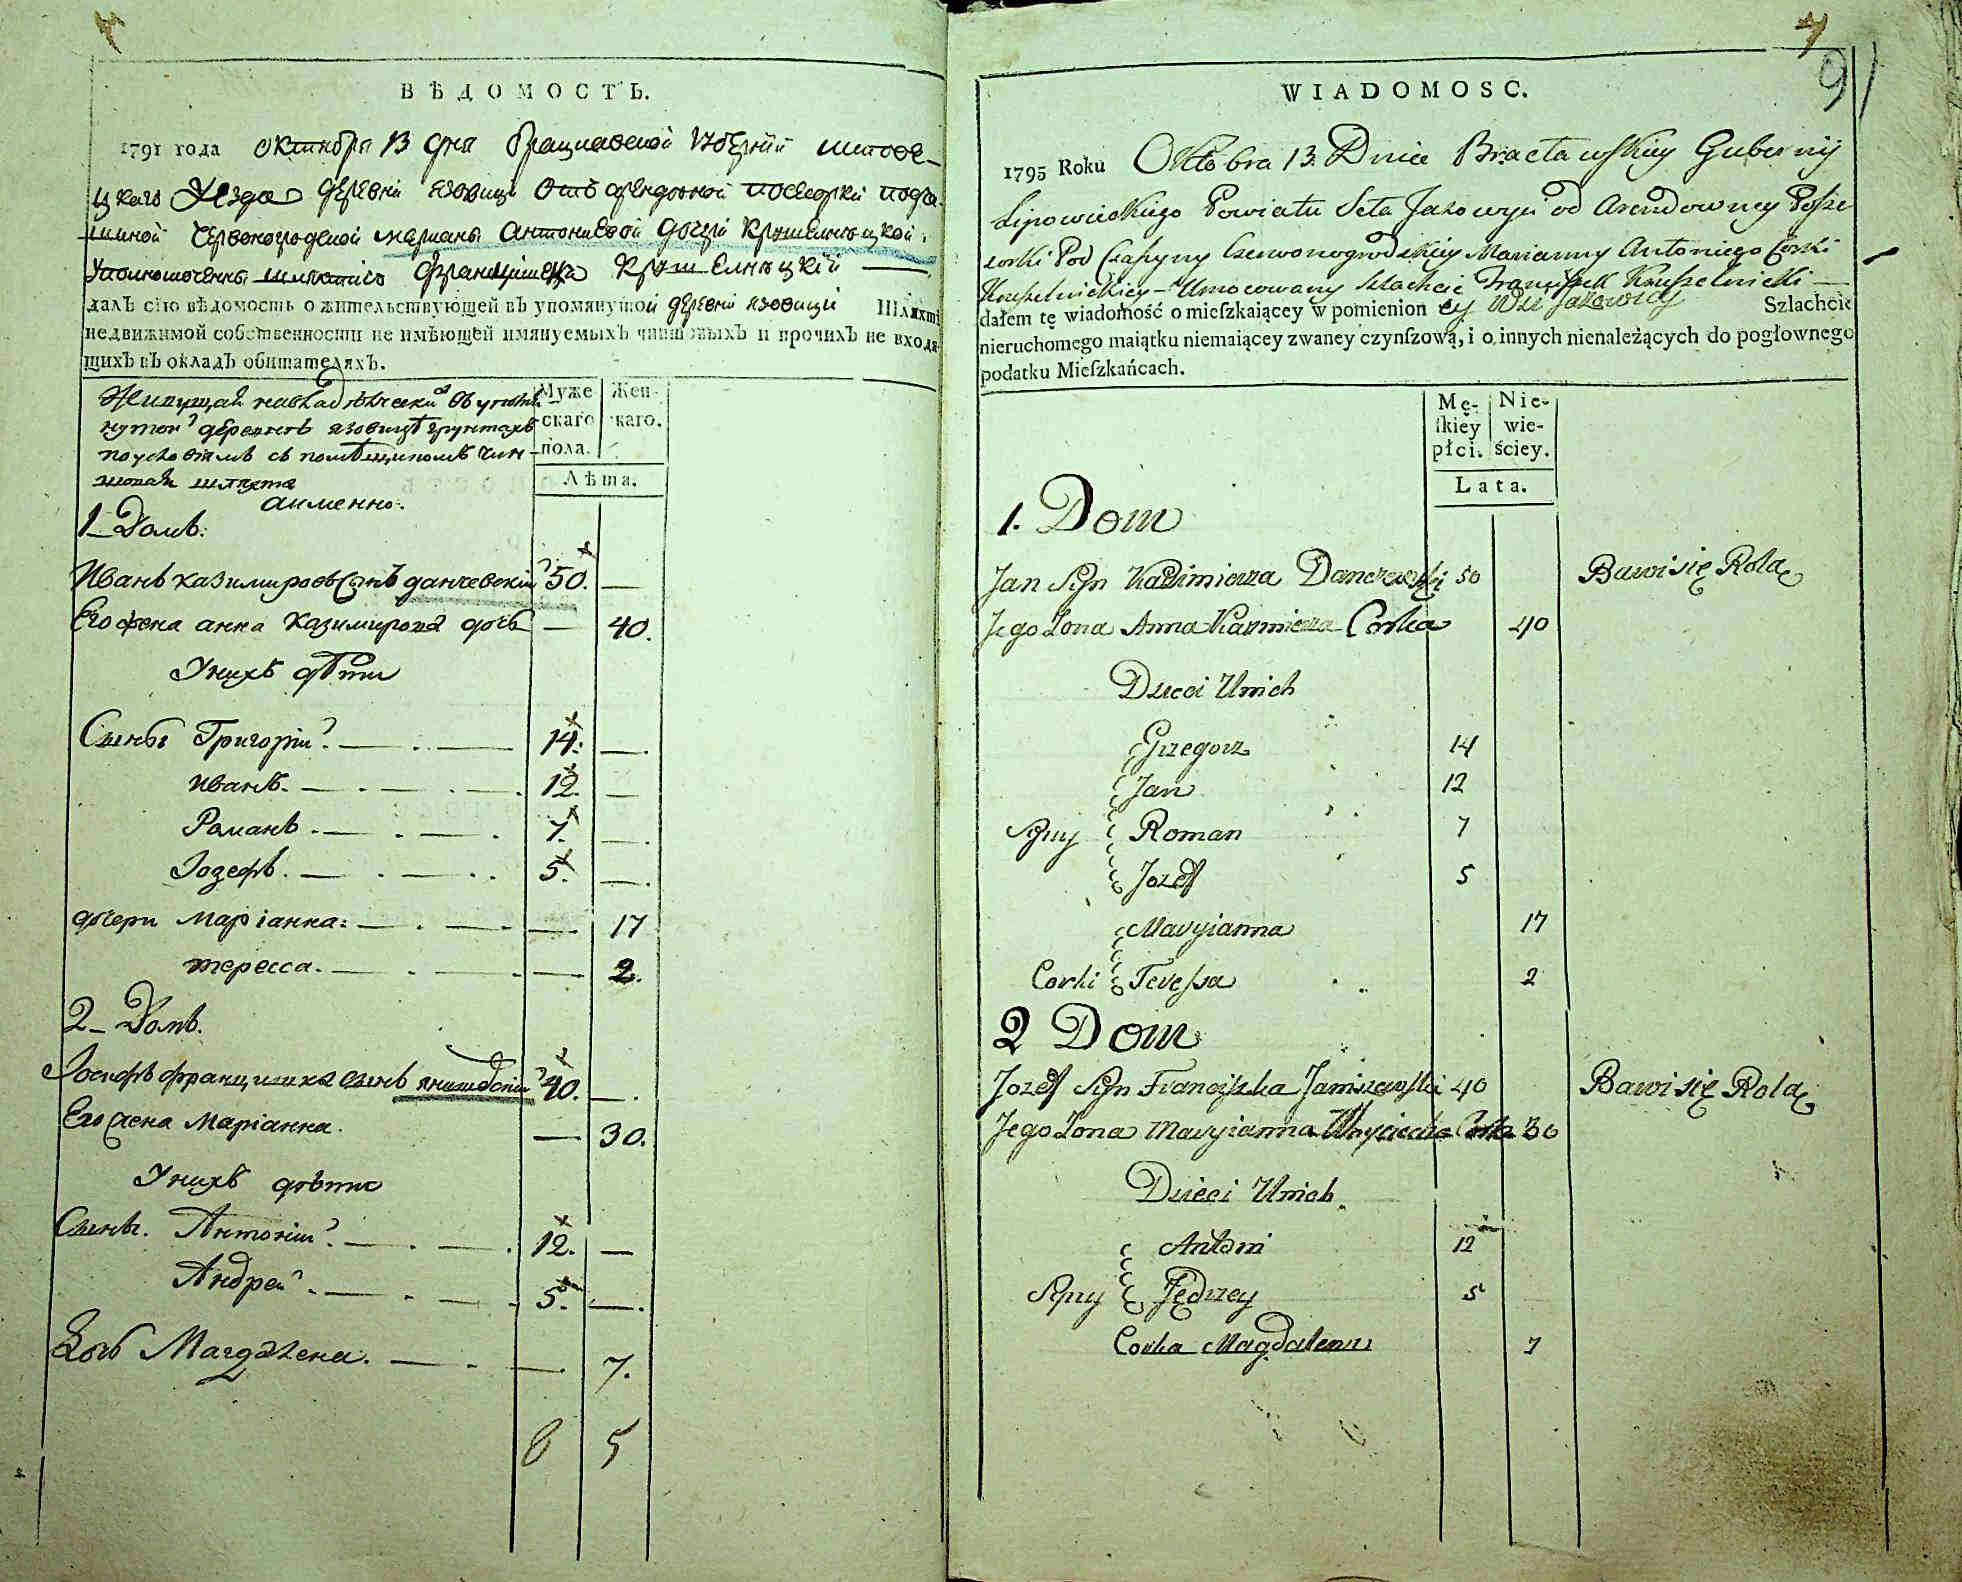 ВѢДОМОСТЬ.
1791 года октября 13 дня Брацлавской губерніи липове-
цкаго уезда деревни язовици отъ арендовной посесорки подча-
шиной червоногродской марианы антониевой дочери крушелницкой
уполномоченны шляхтичъ францишекъ Крушелницкій
далъ сію вѣдомость о жительствующей въ упомянутой деревни язовици Шляхтѣ
недвижимой собственности не имѣющей имянуемыхъ чиншовыхъ и прочихъ не входя-
щихъ въ окладъ обитателяхъ.
Живущая въ упомя-
нутой деревнѣ язовицѣ грунтахъ
по условіямъ съ помѣщикомъ чин-
шовая шляхта
аименно:
Муже
скаго
пола.
Жен-
скаго.
Лѣта.
1 Домъ:
Иванъ казимировъ Сынъ данчевскій 50. —
Его жена анна казимирова дочь — 40.
У нихъ дѣти
Сыны Григорій 14. —
иванъ. 12. —
Романъ. 7. —
Іозефъ. 5. —
дочери Маріанна: — 17
тересса. — 2.
2 Домъ.
Іосифъ франциска Сынъ янишевскій 40. —
Его жена маріанна. — 30.
У нихъ дѣти
Сыны. Антоній 12. —
Андрей 5. —
Дочь Магдалена. — 7.
8 5
4
91
WIADOMOSC.
1795 Roku Oktobra 13 Dnia Bracławskiey Gubernij
Lipowieckiego Powiatu Sela Jazowyci od Arendowney Posse
sorki Pod Czaszyny Czerwonogrodzkiey Marianny Antoniego Corki
Kruszelnickiey Umocowany Szlachcic Franciszek Kruszelnicki
dałem tę wiadomość o mieſzkaiącey w pomienioney Wsi Jazowicy Szlachcie
nieruchomego maiątku niemaiącey zwaney czynſzową, i o innych nienależących do pogłownego
podatku Mieſzkańcach.
Mę-
ſkiey
płci.
Nie-
wie-
ściey.
Lata.
1. Dom
Jan Syn Kazimierza Danczewski 50 Bawi się Rolą
Jego Zona Anna Kazimierza Corka 40
Dzieci Unich
Grzegorz 14
Jan 12
Syny Roman 7
Jozef 5
Maryianna 17
Corki Teressa 2
2 Dom
Jozef Syn Franciszka Janiszewski 40 Bawi się Rolą
Jego Zona Maryianna Woyciecha Corka 30
Dzieci Unich
Antoni 12
Syny Jędrzey 5
Corka Magdalena 7